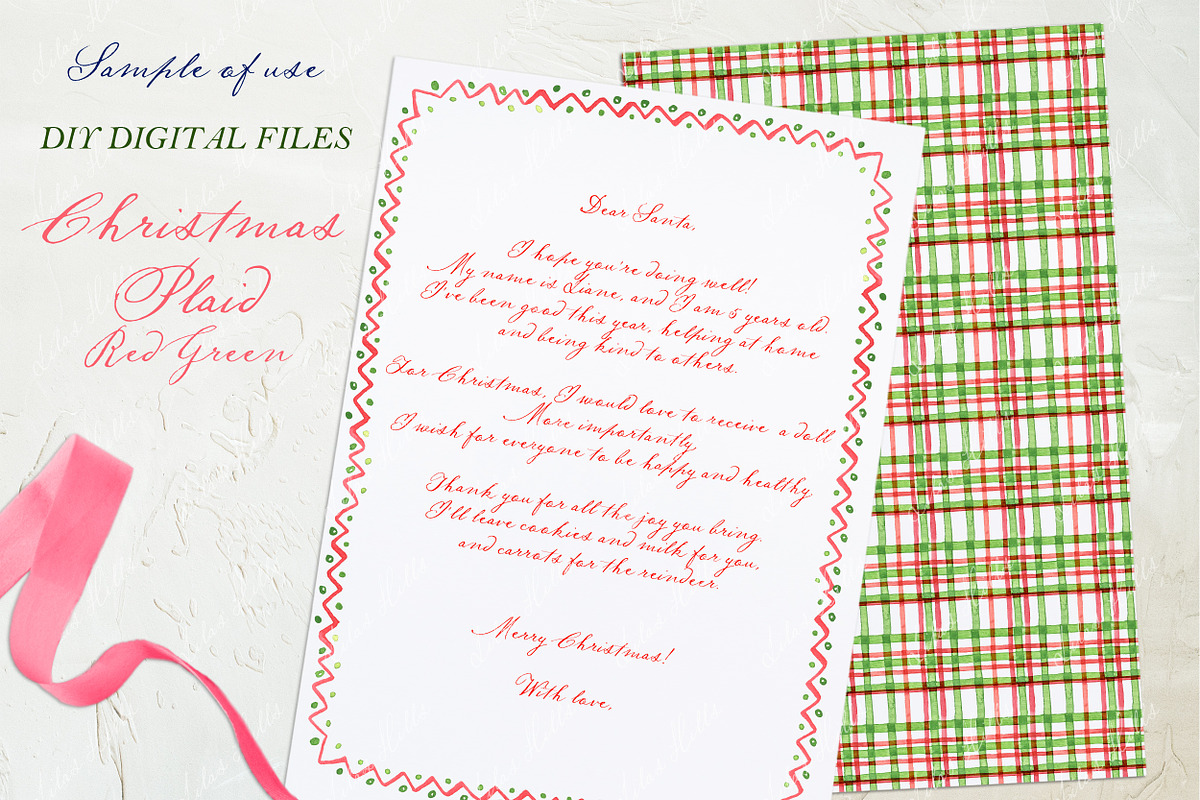 Sample of use
DIY DIGITAL FILES
Christmas
Plaid
Red Green
Dear Santa,
I hope you're doing well!
My name is Liane, and I am 5 years old.
I've been good this year, helping at home
and being kind to others.
For Christmas, I would love to receive a doll
More importantly,
I wish for everyone to be happy and healthy
Thank you for all the joy you bring.
I'll leave cookies and milk for you,
and carrots for the reindeer.
Merry Christmas!
With love,